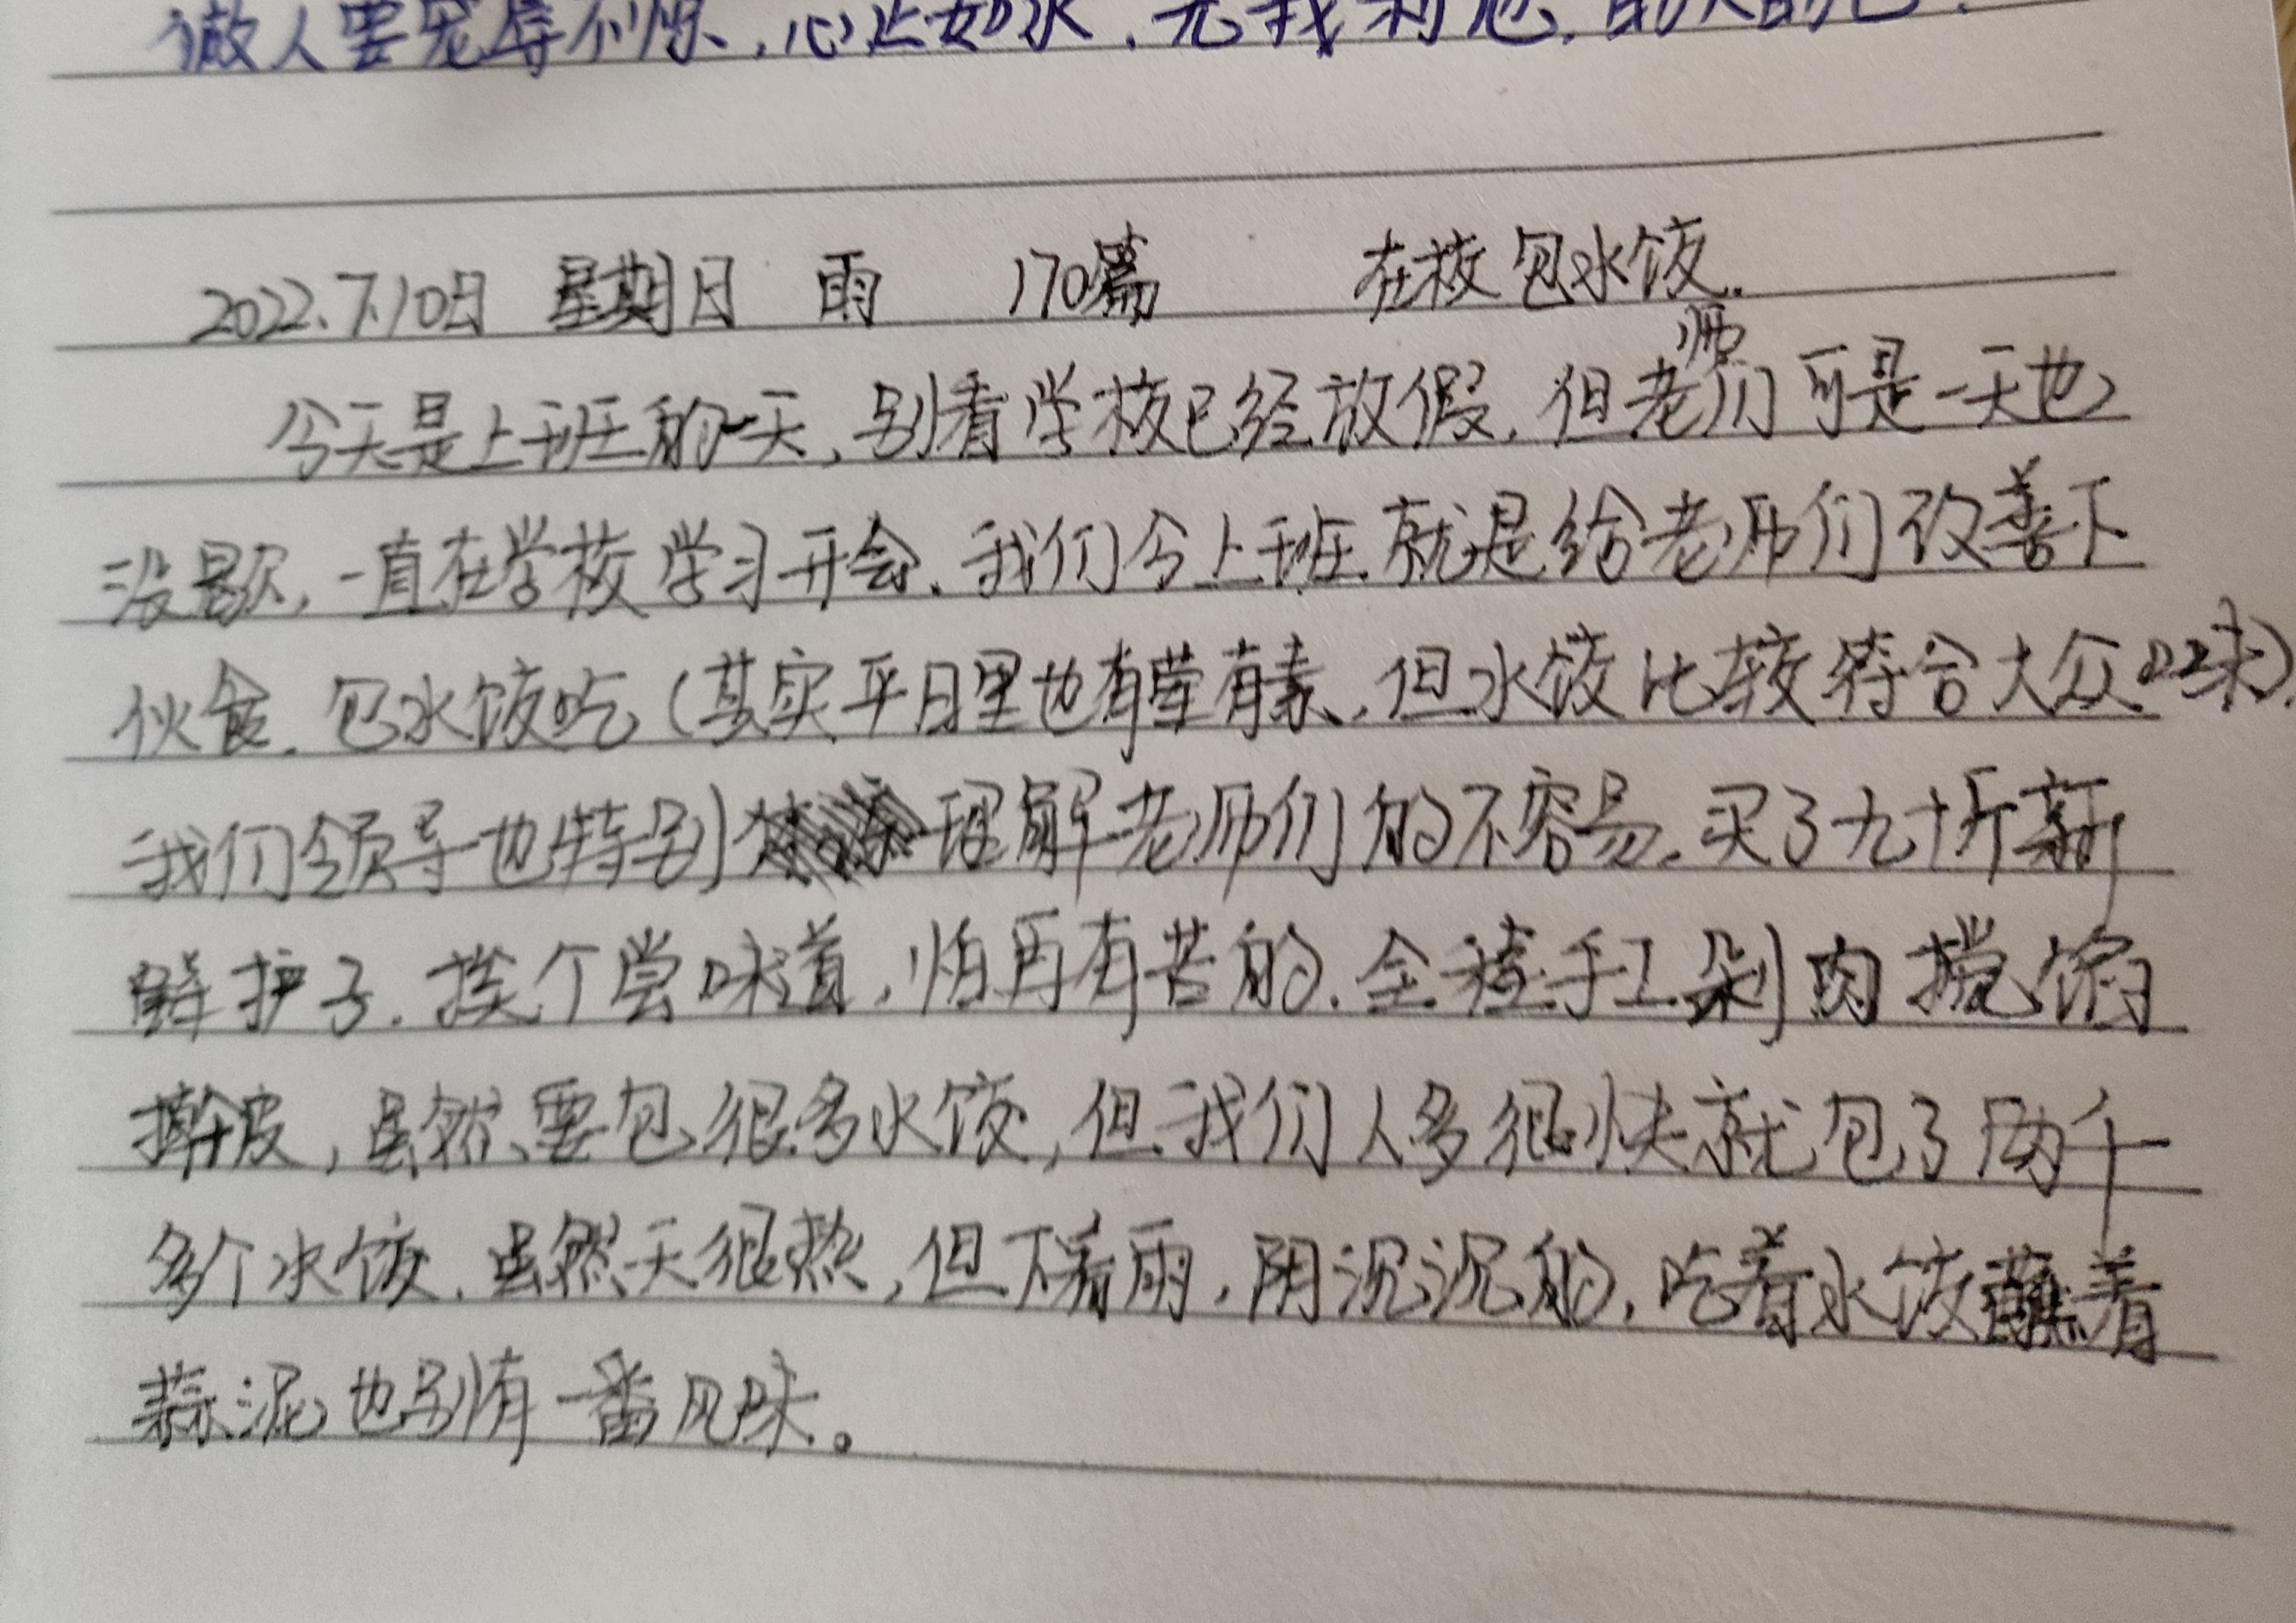 做人要宠辱不惊,心止如水,无我利他,
2022.7.10日 星期日 雨 170篇 在校包水饺.
今天是上班的一天,别看学校已经放假,但老师们可是一天也
没歇,一直在学校学习开会.我们今上班就是给老师们改善下
伙食.包水饺吃(其实平日里也有荤有素,但水饺比较符合大众口味).
我们领导也特别理解老师们的不容易.买了九十斤新
鲜护子.挨个尝味道,怕再有苦的.全程手工剁肉搅馅
擀皮,虽然要包很多水饺,但我们人多很快就包了两千
多个水饺.虽然天很热,但下着雨,阴沉沉的,吃着水饺蘸着
蒜泥也别有一番风味。